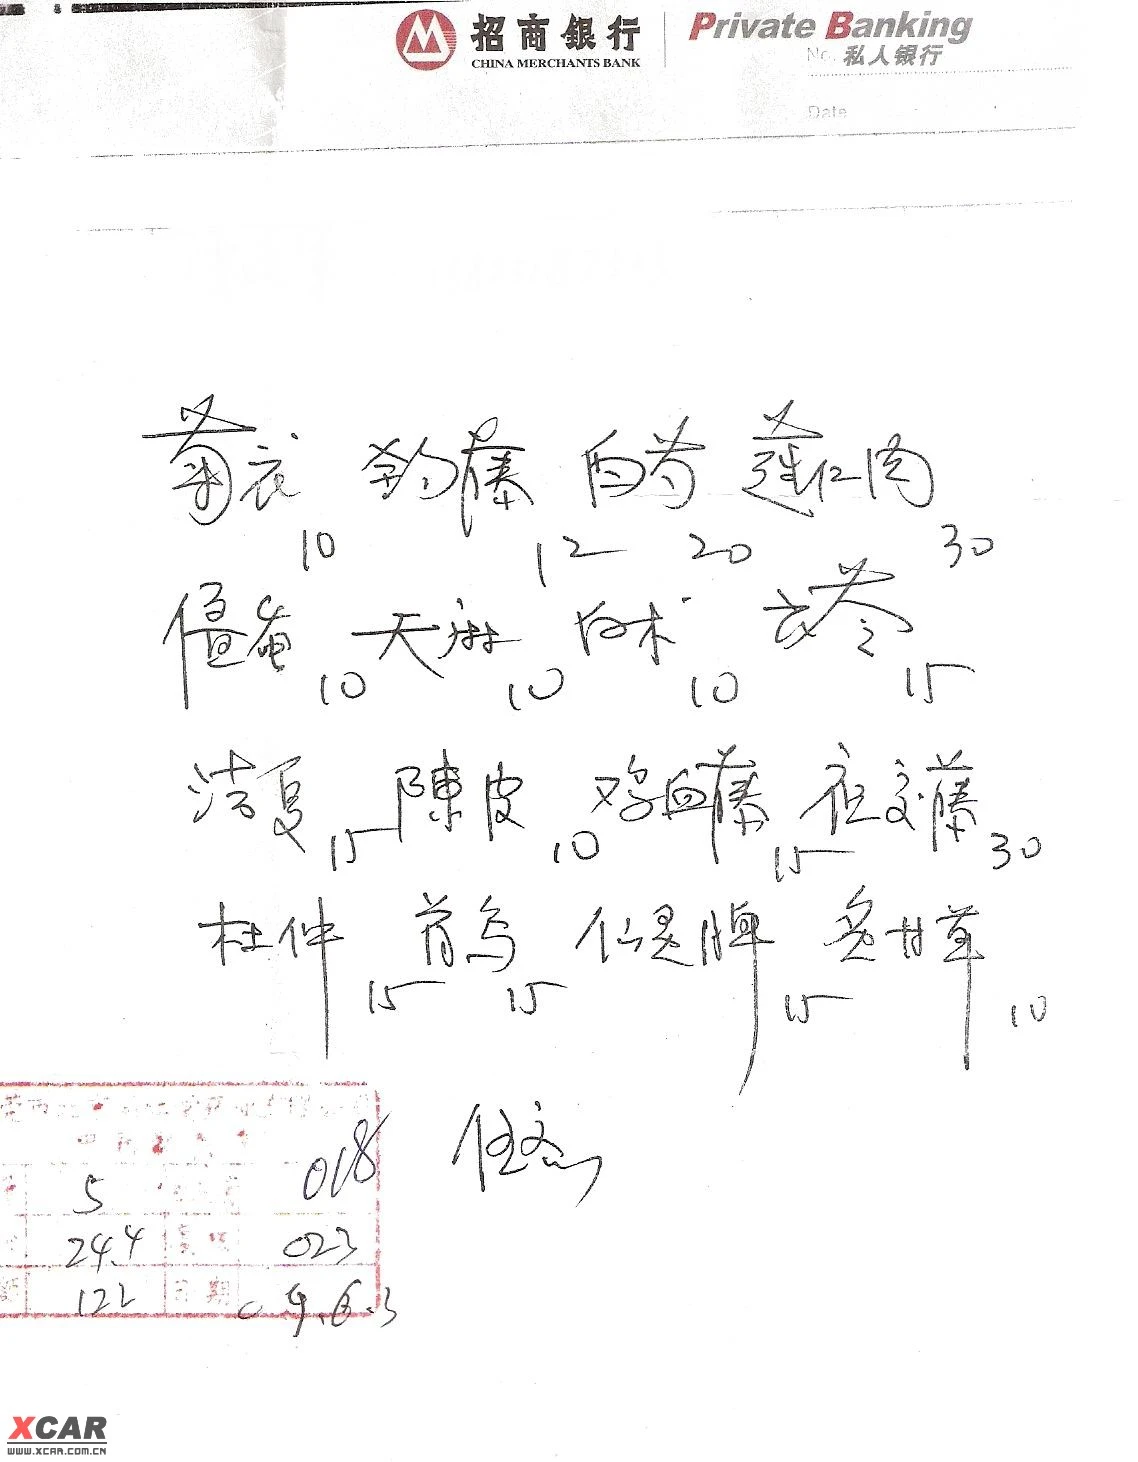 招商银行 Private Banking
CHINA MERCHANTS BANK No. 私人银行
Date
菊衣 10 钩藤 12 白芍 20 莲仁肉 30
僵蚕 10 天麻 10 白术 10 茯苓 15
法夏 15 陳皮 10 鸡血藤 15 夜交藤 30
杜仲 15 首乌 15 仙灵脾 15 炙甘草 10
5 018
24.4 023
122 日期 09.6.3
XCAR
WWW.XCAR.COM.CN